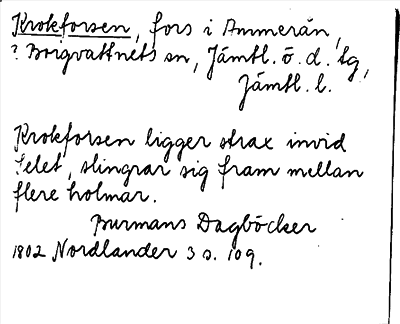 Krokforsen, fors i Ammerån,
? Borgvattnets sn, Jämtl. ö. d. tg,
Jämtl. l.
Krokforsen ligger strax invid
Selet, slingrar sig fram mellan
flere holmar.
Burmans Dagböcker
1802 Nordlander 3 s. 109.